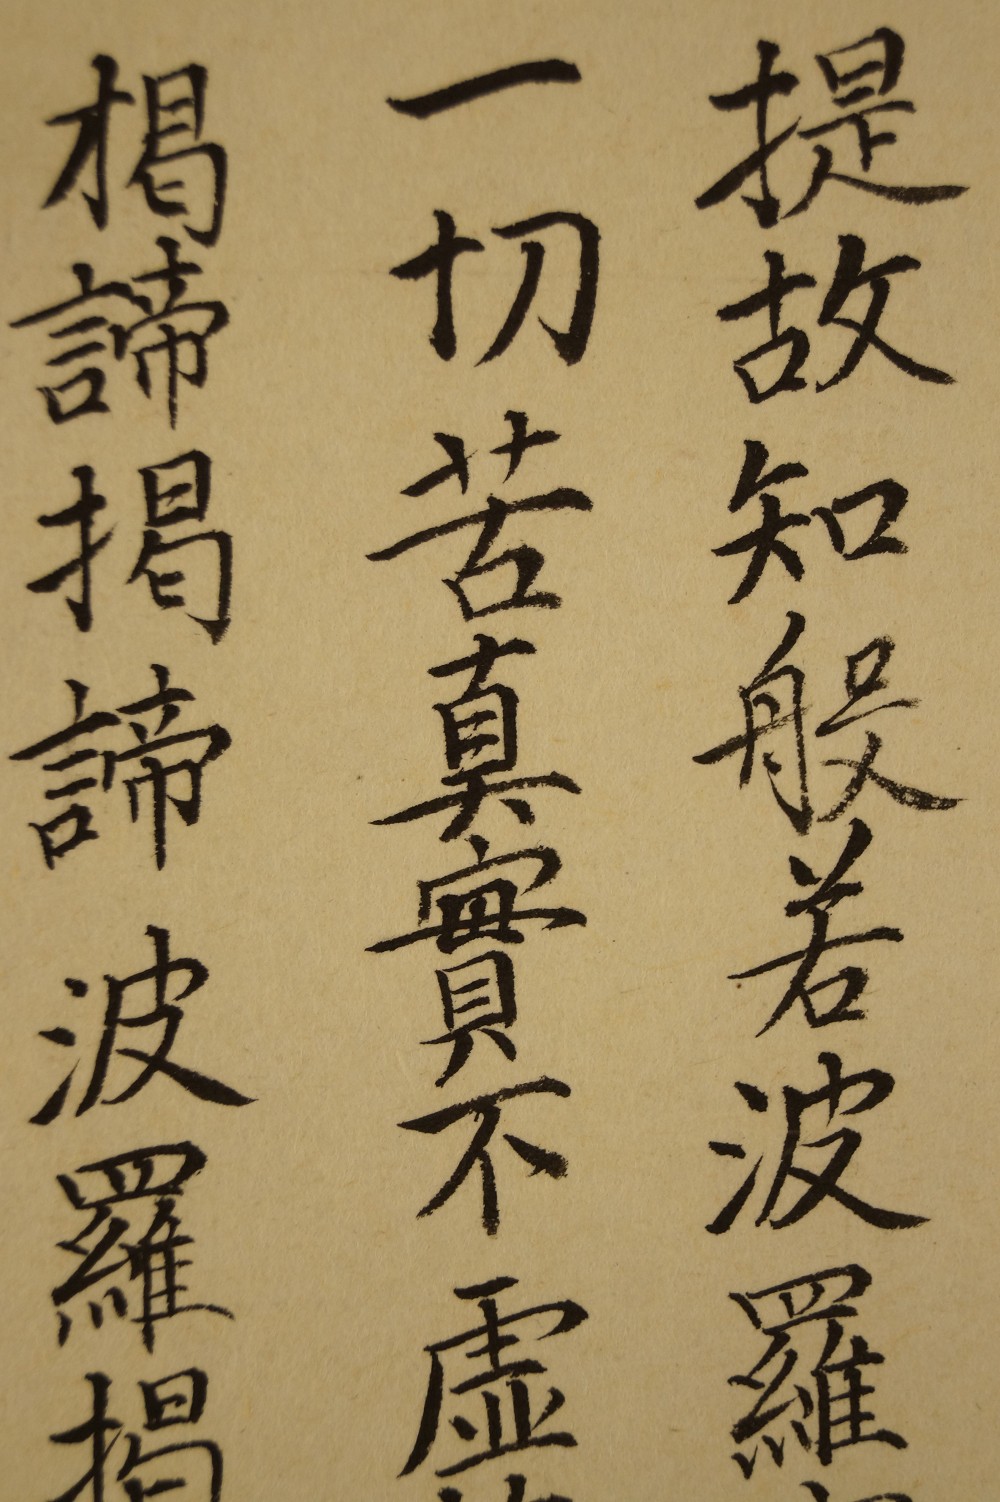 提故知般若波羅
一切苦真實不虛
揭諦揭諦波羅揭